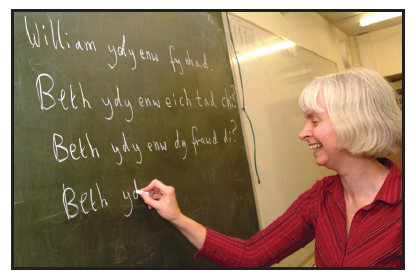 William ydy enw fy nhad.
Beth ydy enw eich tad chi?
Beth ydy enw dy frawd di?
Beth yd